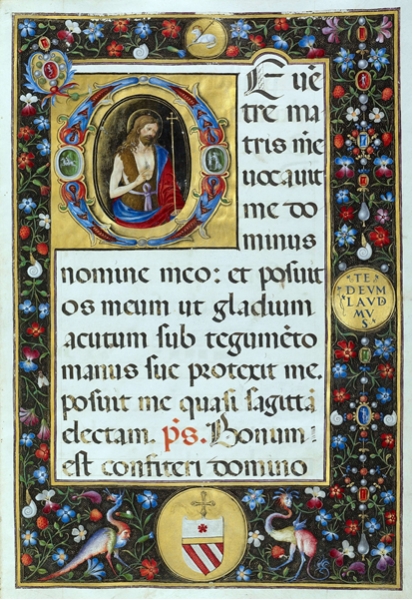 D E uē
tre ma
tris mē
uocauit
me do
minus
nomine meo: et posuit
os meum ut gladium
acutum sub tegumēto
manus sue protexit me.
posuit me quasi sagittā
electam. ps. Bonum
est confiteri domino
TE
DEVM
LAVD
MV
S